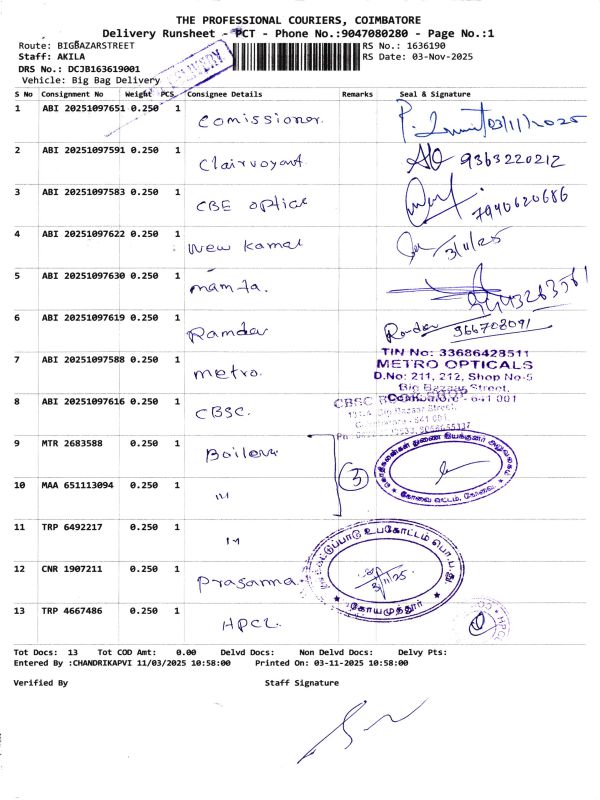 THE PROFESSIONAL COURIERS, COIMBATORE
Delivery Runsheet - PCT - Phone No.:9047080280 - Page No.:1
Route: BIGBAZARSTREET RS No.: 1636190
Staff: AKILA RS Date: 03-Nov-2025
DRS No.: DCJB163619001
Vehicle: Big Bag Delivery
S No Consignment No Weight PCS Consignee Details Remarks Seal & Signature
1 ABI 20251097651 0.250 1 Comissioner. 03/11/2025
2 ABI 20251097591 0.250 1 Clairvoyant. 9363220212
3 ABI 20251097583 0.250 1 CBE optical 7940620686
4 ABI 20251097622 0.250 1 New Kamal 3/11/25
5 ABI 20251097630 0.250 1 mamta.
6 ABI 20251097619 0.250 1 Ramdev 966708091
TIN No: 33686428511
7 ABI 20251097588 0.250 1 metro. METRO OPTICALS
D.No: 211, 212, Shop No-5
Big Bazaar Street,
8 ABI 20251097616 0.250 1 CBSC. Coimbatore - 641 001
CBSC
9 MTR 2683588 0.250 1 Boilers 3
கோவை
10 MAA 651113094 0.250 1 111
11 TRP 6492217 0.250 1
உபகோட்டம்
12 CNR 1907211 0.250 1 Prasanna. 3/11/25
கோயமுத்தூர்
13 TRP 4667486 0.250 1 HPCL. HPCL
Tot Docs: 13 Tot COD Amt: 0.00 Delvd Docs: Non Delvd Docs: Delvy Pts:
Entered By :CHANDRIKAPVI 11/03/2025 10:58:00 Printed On: 03-11-2025 10:58:00
Verified By Staff Signature